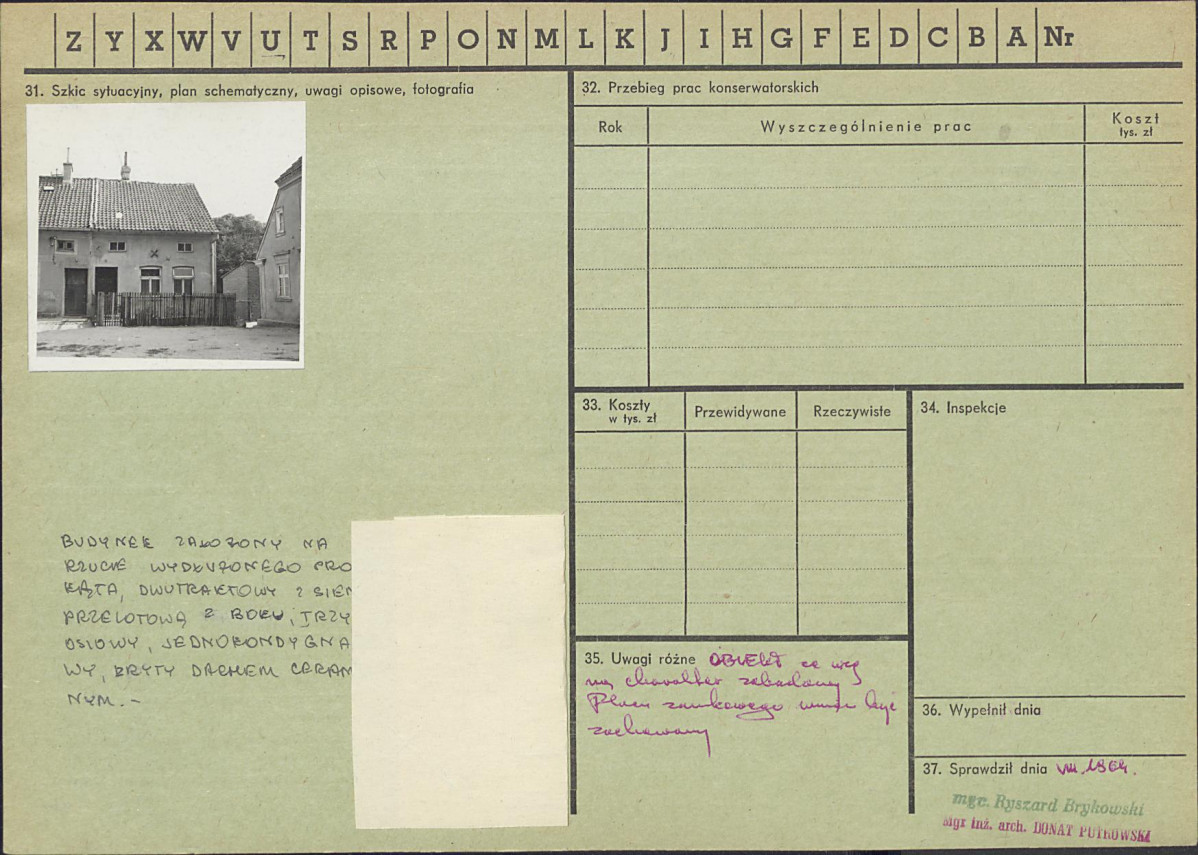 Z Y X W V U T S R P O N M L K J I H G F E D C B A Nr
31. Szkic sytuacyjny, plan schematyczny, uwagi opisowe, fotografia
BUDYNEK ZAŁOŻONY NA
RZUCIE WYDŁUŻONEGO PRO
KĄTA, DWUTRAKTOWY Z SIEN
PRZELOTOWĄ Z BOKU, TRZY
OSIOWY, JEDNOKONDYGNA
WY, KRYTY DACHEM CERAM
NYM.-
32. Przebieg prac konserwatorskich
Rok
Wyszczególnienie prac
Koszt
tys. zł
33. Koszty
w tys. zł
Przewidywane
Rzeczywiste
34. Inspekcje
35. Uwagi różne OBIEKT ze wzg
na charakter zabudowy
Placu zamkowego być
zachowany
36. Wypełnił dnia
37. Sprawdził dnia VIII.1964.
mgr. Ryszard Brykowski
mgr inż. arch. DONAT PUTKOWSKI